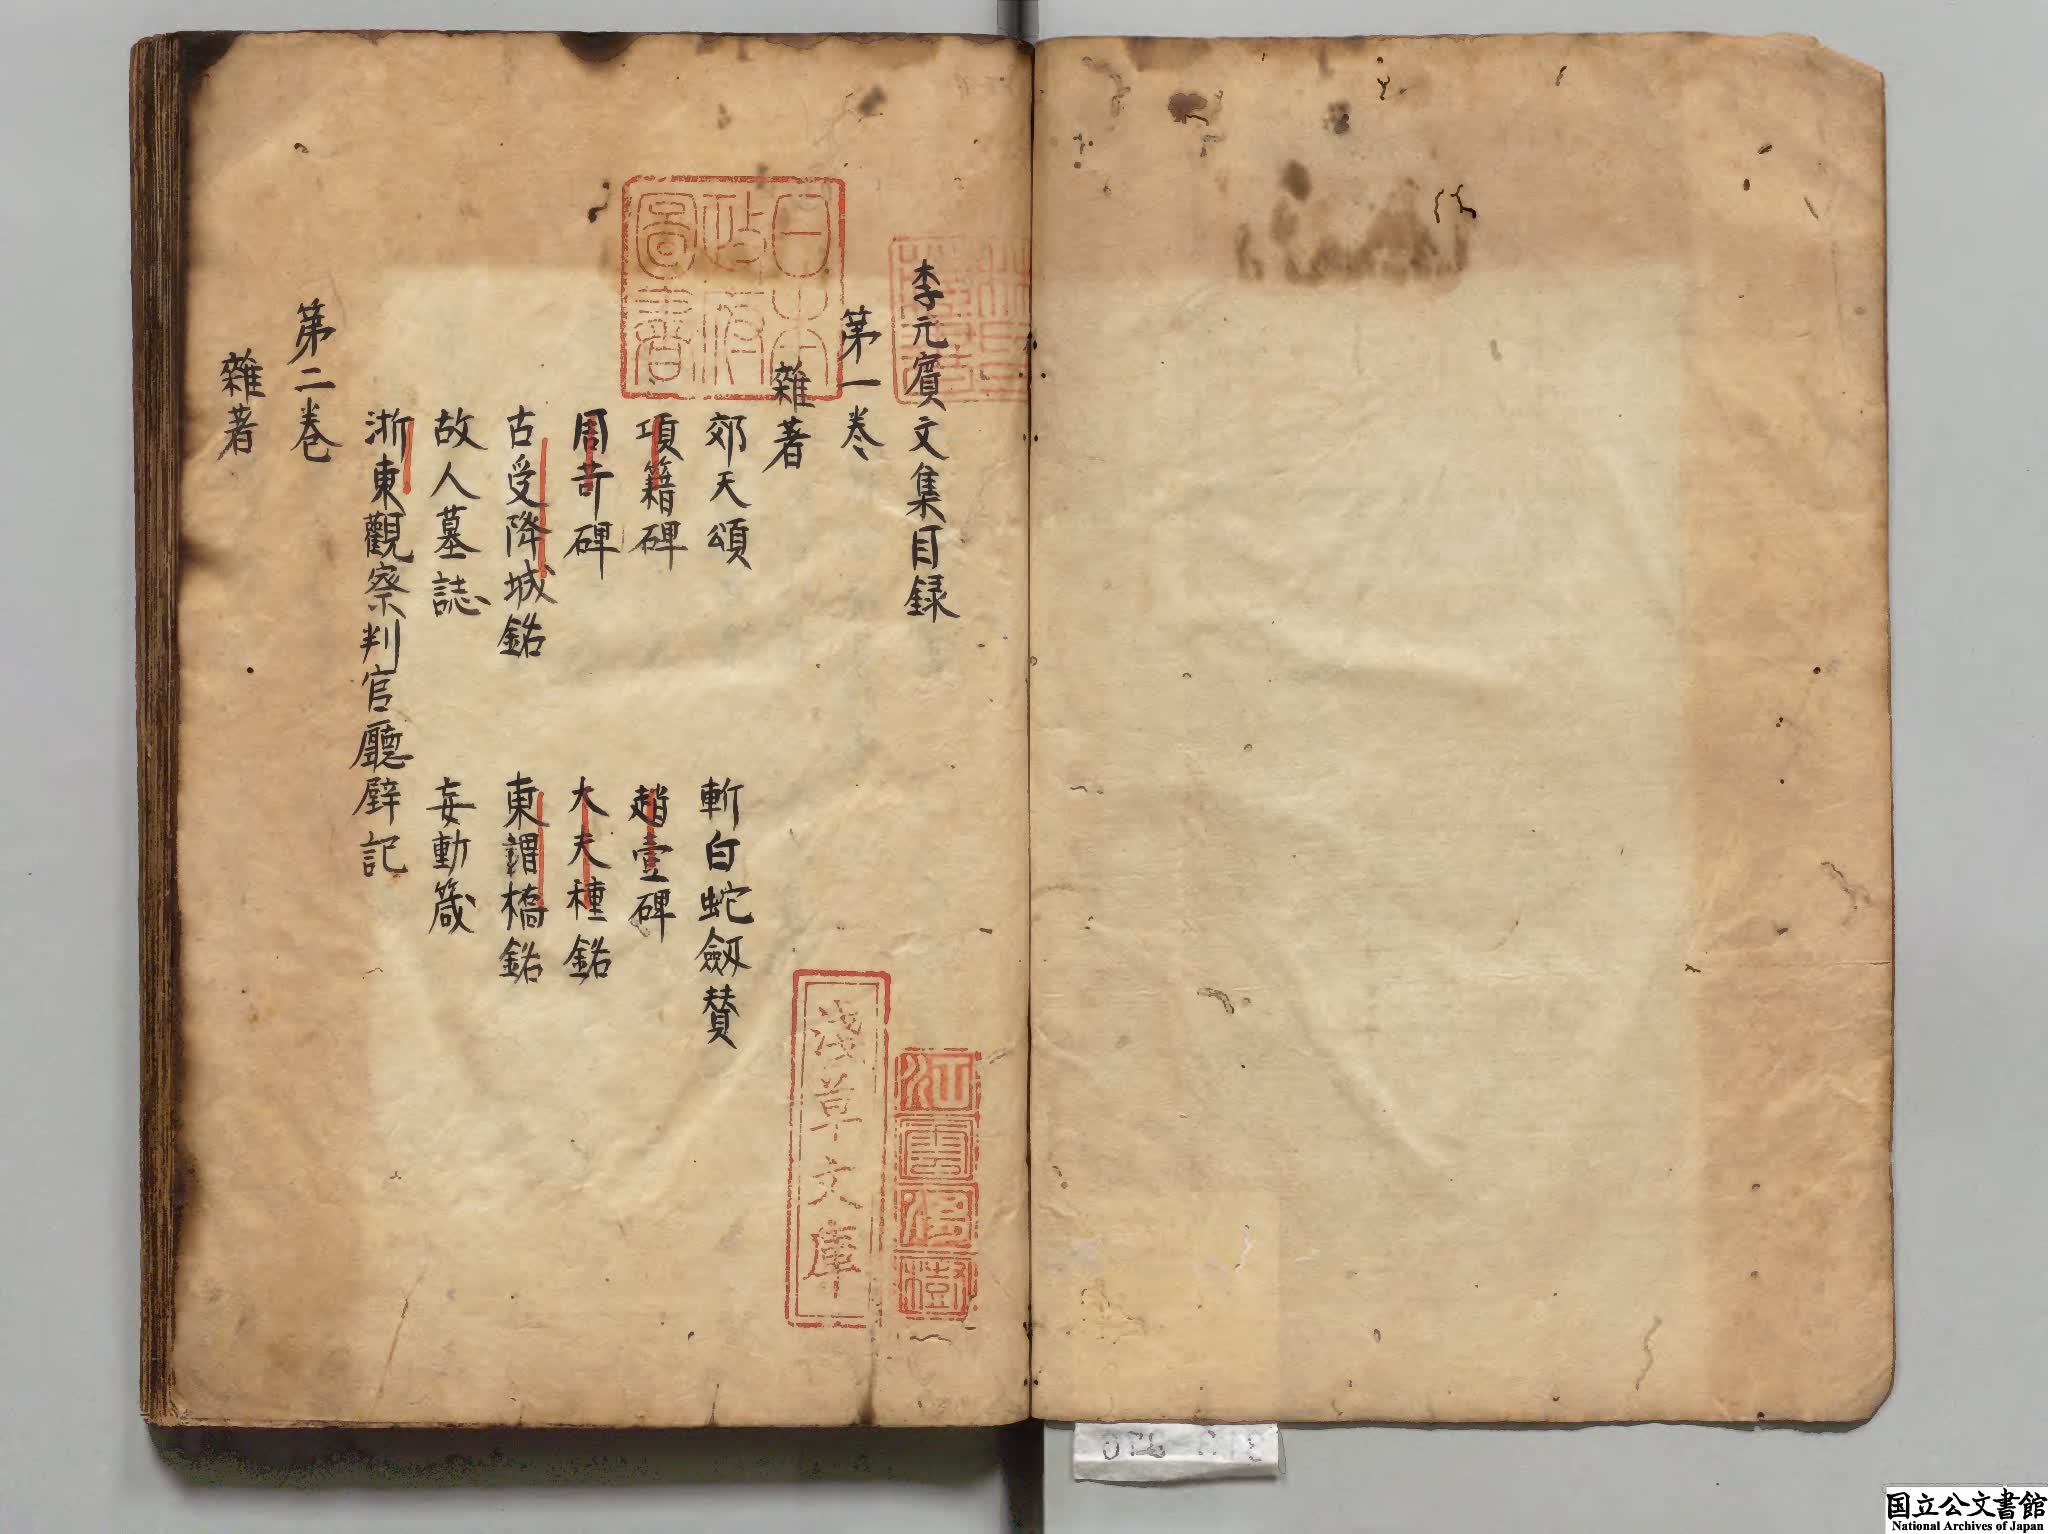 李元賓文集目録
第一卷
雜著
郊天頌
斬白蛇劔賛
項籍碑
趙壹碑
周苛碑
大夫種銘
古受降城銘
東謂橋銘
故人墓誌
妄動箴
浙東觀察判官廳壁記
第二卷
雜著
日本
政府
圖書
淺草文庫
江雲渭樹
国立公文書館
National Archives of Japan